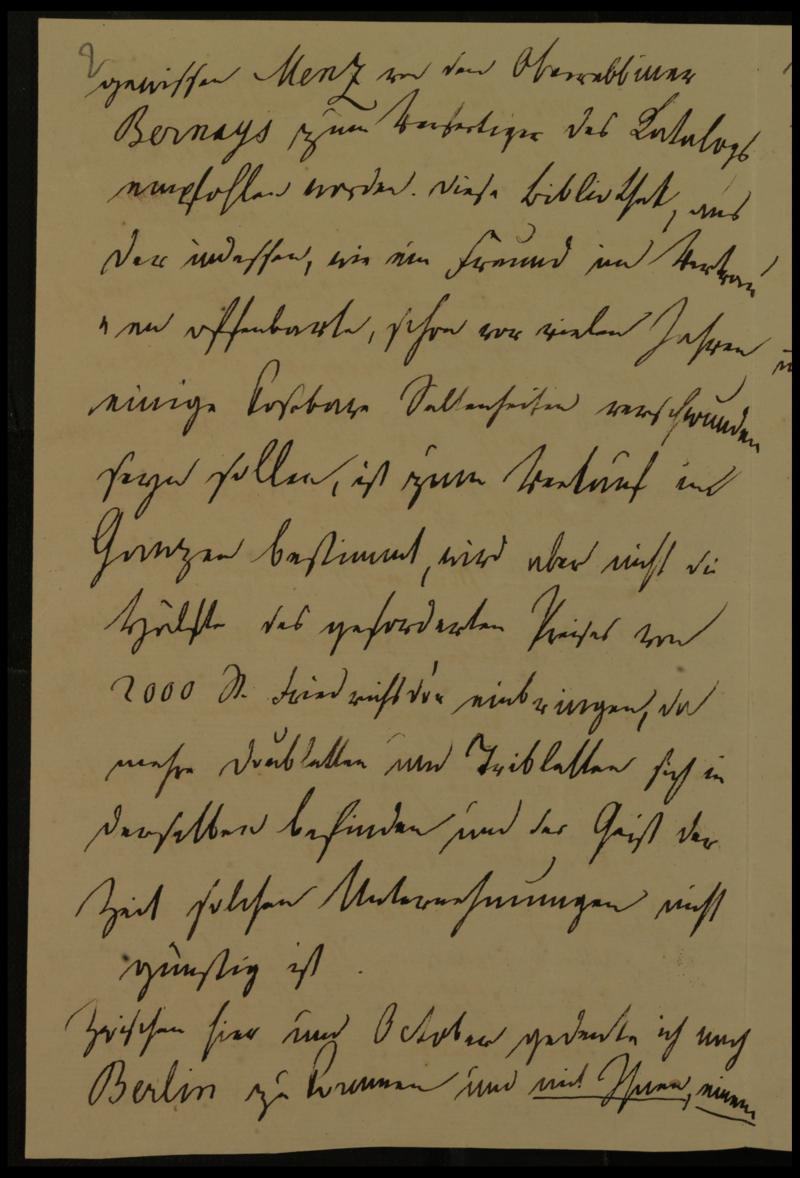 gewissen Menz von dem Oberrabbiner
Bernays zum Verfertiger des Catalogs
empfohlen worden. Diese Bibliothek, aus
der indessen, wie ein Freund im Vertrau
en offenbarte, schon vor vielen Jahren
einige kostbare Seltenheiten verschwunden
seyn sollen, ist zum Verkauf im
Ganzen bestimmt, wird aber nicht die
Hälfte des geforderten Preises von
2000 St. Friedrichsdór einbringen, da
mehre Doubletten und Tribletten sich in
derselben befinden und der Geist der
Zeit solchen Unternehmungen nicht
günstig ist.
Zwischen hier und October gedenke ich nach
Berlin zu kommen und mit Ihnen, einem